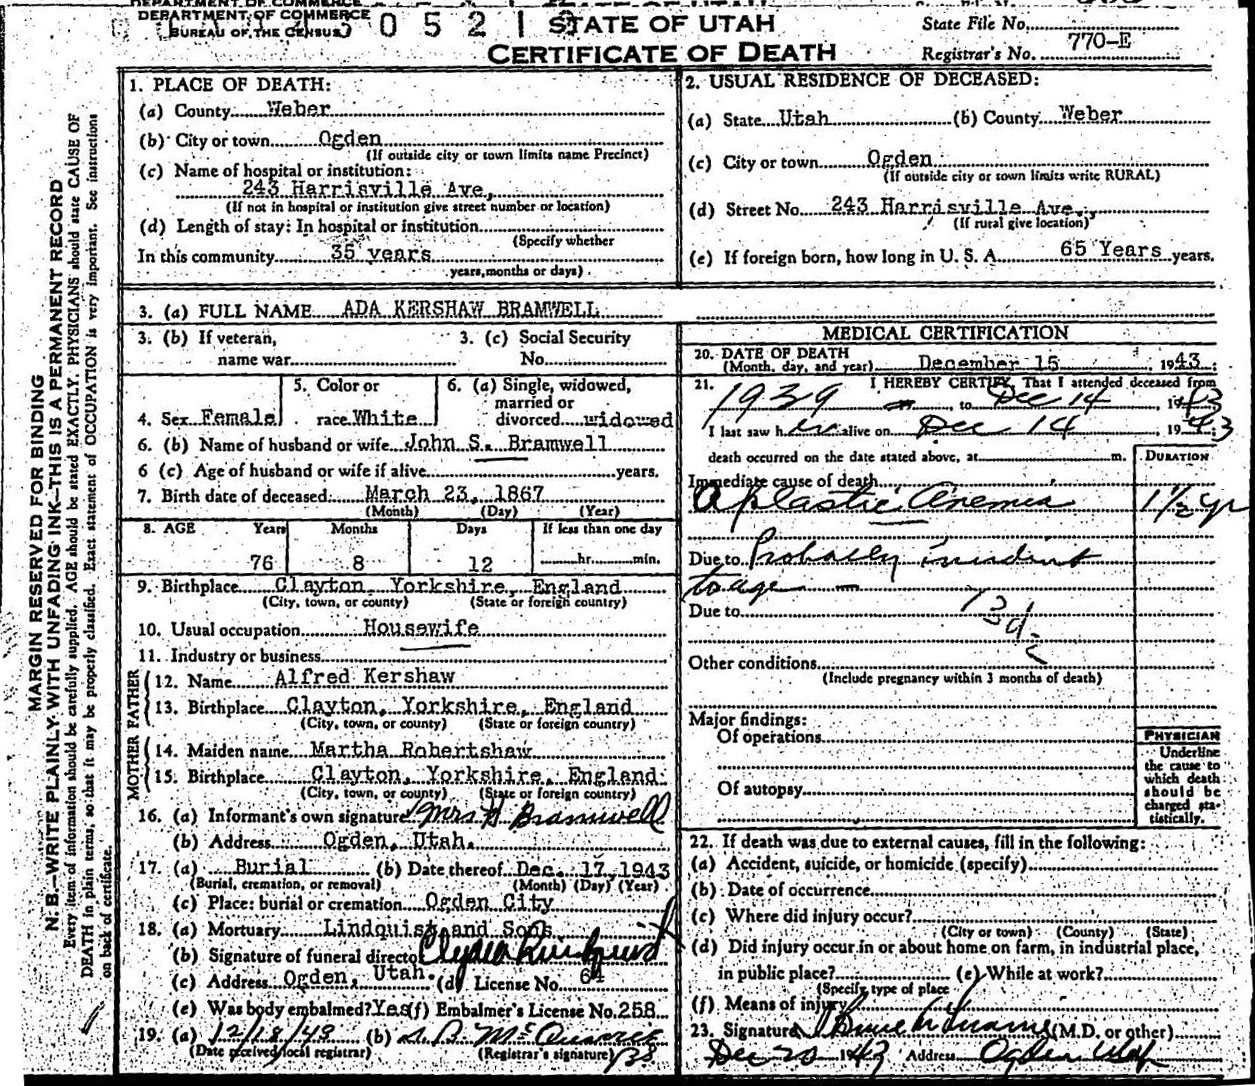 DEPARTMENT OF COMMERCE
BUREAU OF THE CENSUS
0 5 2 1
STATE OF UTAH
CERTIFICATE OF DEATH
State File No.
Registrar's No. 770-E
MARGIN RESERVED FOR BINDING
N. B.—WRITE PLAINLY WITH UNFADING INK—THIS IS A PERMANENT RECORD
Every item of information should be carefully supplied. AGE should be stated EXACTLY. PHYSICIANS should state CAUSE OF
DEATH in plain terms, so that it may be properly classified. Exact statement of OCCUPATION is very important. See instructions
on back of certificate.
1. PLACE OF DEATH:
(a) County Weber
(b) City or town Ogden
(If outside city or town limits name Precinct)
(c) Name of hospital or institution:
243 Harrisville Ave,
(If not in hospital or institution give street number or location)
(d) Length of stay: In hospital or institution
(Specify whether
In this community 35 years
years, months or days)
2. USUAL RESIDENCE OF DECEASED:
(a) State Utah (b) County Weber
(c) City or town Ogden
(If outside city or town limits write RURAL)
(d) Street No. 243 Harrisville Ave.,
(If rural give location)
(e) If foreign born, how long in U. S. A. 65 Years years.
3. (a) FULL NAME ADA KERSHAW BRAMWELL
3. (b) If veteran,
name war
3. (c) Social Security
No.
4. Sex Female
5. Color or
race White
6. (a) Single, widowed,
married or
divorced widowed
6. (b) Name of husband or wife John S. Bramwell
6 (c) Age of husband or wife if alive years.
7. Birth date of deceased: March 23, 1867
(Month) (Day) (Year)
8. AGE Years Months Days If less than one day
76 8 12 hr. min.
9. Birthplace Clayton, Yorkshire, England
(City, town, or county) (State or foreign country)
10. Usual occupation Housewife
11. Industry or business
FATHER
12. Name Alfred Kershaw
13. Birthplace Clayton, Yorkshire, England
(City, town, or county) (State or foreign country)
MOTHER
14. Maiden name Martha Robertshaw
15. Birthplace Clayton, Yorkshire, England.
(City, town, or county) (State or foreign country)
16. (a) Informant's own signature Mrs H Bramwell
(b) Address Ogden, Utah.
17. (a) Burial (b) Date thereof Dec. 17, 1943
(Burial, cremation, or removal) (Month) (Day) (Year)
(c) Place: burial or cremation Ogden City
18. (a) Mortuary Lindquist and Sons
(b) Signature of funeral director
(c) Address Ogden, Utah. (d) License No. 64
(e) Was body embalmed? Yes (f) Embalmer's License No. 258
19. (a) 12/18/43 (b)
(Date received local registrar) (Registrar's signature)
MEDICAL CERTIFICATION
20. DATE OF DEATH
(Month, day, and year) December 15, 1943
21. I HEREBY CERTIFY, That I attended deceased from
1939, to Dec 14, 1943
I last saw her alive on Dec 14 1943
death occurred on the date stated above, at m.
DURATION
Immediate cause of death
Aplastic Anemia 1½ yr
Due to Probably incident
to age —
Due to
73d
Other conditions
(Include pregnancy within 3 months of death)
Major findings:
Of operations
Of autopsy
PHYSICIAN
Underline
the cause to
which death
should be
charged sta-
tistically.
22. If death was due to external causes, fill in the following:
(a) Accident, suicide, or homicide (specify)
(b) Date of occurrence
(c) Where did injury occur?
(City or town) (County) (State)
(d) Did injury occur in or about home on farm, in industrial place,
in public place? (e) While at work?
(Specify type of place
(f) Means of injury
23. Signature (M.D. or other)
Dec 20 1943 Address Ogden Utah